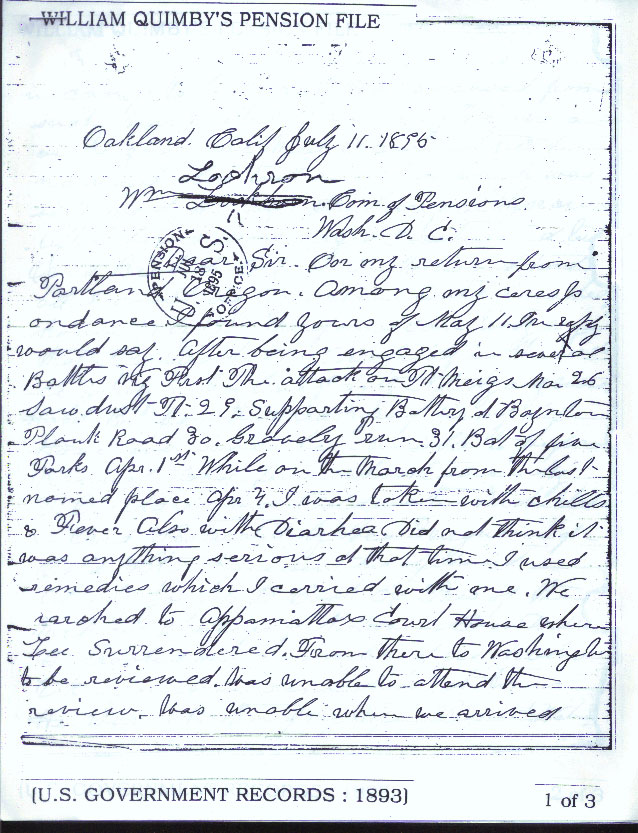 WILLIAM QUIMBY'S PENSION FILE
Oakland. Calif July 11. 1895
Lochron
Wm Com. of Pensions.
Wash. D. C.
U.S. PENSION OFFICE JUL 18 1895
Dear Sir. On my return from
Portland Oregon. Among my corresp
ondance I found yours of May 11. In reply
would say. After being engaged in several
Battles viz First The attack on Ft Meigs Mar 26
Saw dust Ft. 29. Supporting Battery at Boynton
Plank Road 30. Gravely run 31. Bat of five
Forks. Apr. 1st While on the March from the last
named place Apr 4. I was taken with chills
& Fever Also with Diarhea Did not think it
was anything serious at that time I used
remedies which I carried with me. We
marched to Appamattox Court House where
Lee Surrendered. From there to Washington
to be reviewed. Was unable to attend the
review. Was unable when we arrived
(U.S. GOVERNMENT RECORDS : 1893)
1 of 3